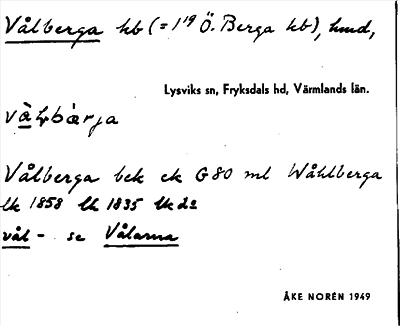 Vålberga hb (= 1¹⁹ Ö. Berga hb), hmd,
Lysviks sn, Fryksdals hd, Värmlands län.
Vålberga bek ek G80 ml Wåhlberga
lk 1858 lk 1835 lk do
vål - se Vålarna
ÅKE NORÉN 1949